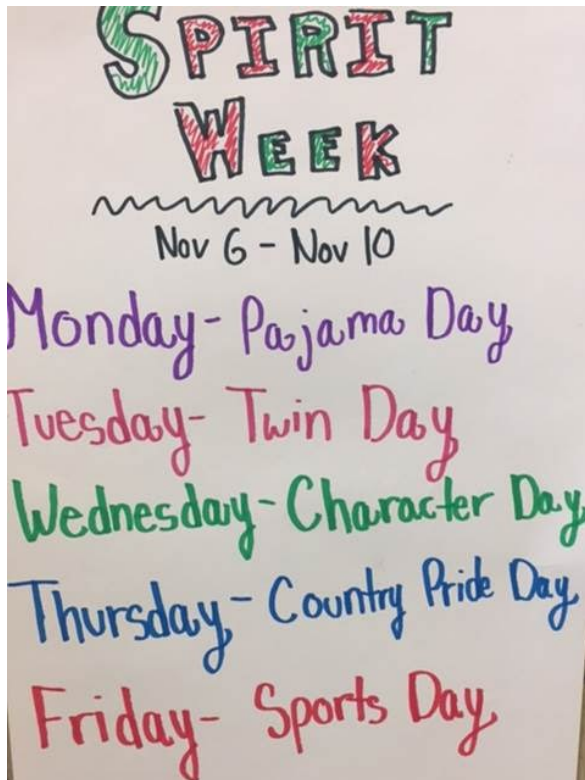 SPIRIT
WEEK
Nov 6 - Nov 10
Monday- Pajama Day
Tuesday- Twin Day
Wednesday- Character Day
Thursday- Country Pride Day
Friday- Sports Day